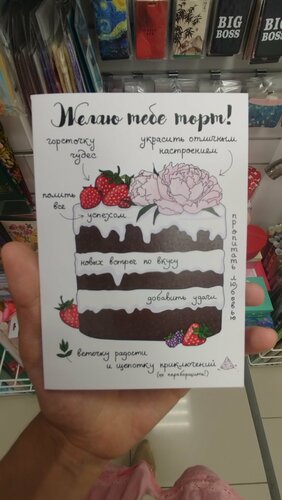 BIG
BOSS
BIG
BOSS
Желаю тебе торт!
горсточку
чудес
украсить отличным
настроением
полить
все
успехом
пропитать любовью
новых встреч по вкусу
добавить удачи
веточку радости
и щепотку приключений
(не переборщить!)